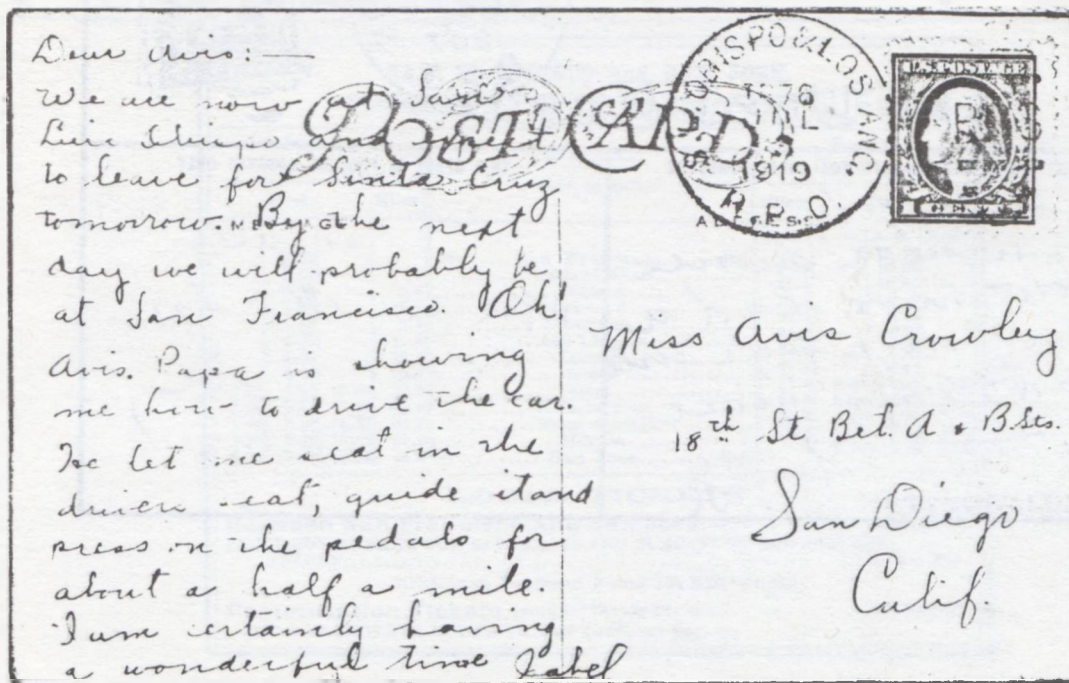 Dear Avis:—
We are now at San
Luis Obispo and expect
to leave for Santa Cruz
tomorrow. By the next
day we will probably be
at San Francisco. Oh!
Avis. Papa is showing
me how to drive the car.
He let me seat in the
drivers seat, guide it and
press on the pedals for
about a half a mile.
I am certainly having
a wonderful time Isabel
POST CARD
S. L. OBISPO & LOS ANG.
1919
R. P. O.
U.S. POSTAGE
Miss Avis Crowley
18th St. Bet. A & B. Sts.
San Diego
Calif.